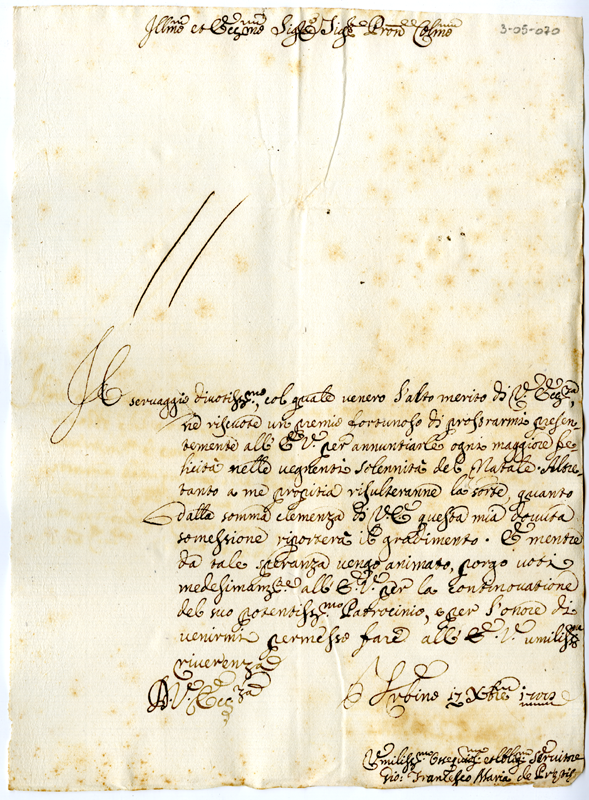 3-05-070
Ill.mo et Ecc.mo Sig.re Sig.re Pron.e Col.mo
Il servaggio divotiss.mo, col quale venero l'alto merito di V. Ecc.za
ne riscuote un premio fortunoso di prostrarmi presen-
temente all'E.V. per annuntiarle ogni maggiore fe-
licità nelle vegnenti solennità del Natale. Altre-
tanto a me propitia risulteranne la sorte, quanto
dalla somma clemenza di V.E. questa mia dovuta
somessione riporterà il gradimento. E mentre
da tale speranza vengo animato, porgo voti
medesimam.te all'E.V. per la continovatione
del suo potentiss.mo Patrocinio, e per l'onore di
venirmi permesso fare all'E.V. umiliss.ma
riverenza
D. V. Ecc.za
Urbino 17 Xbre
Umiliss.mo et obl.mo Servitore
Gio: Francesco Maria de